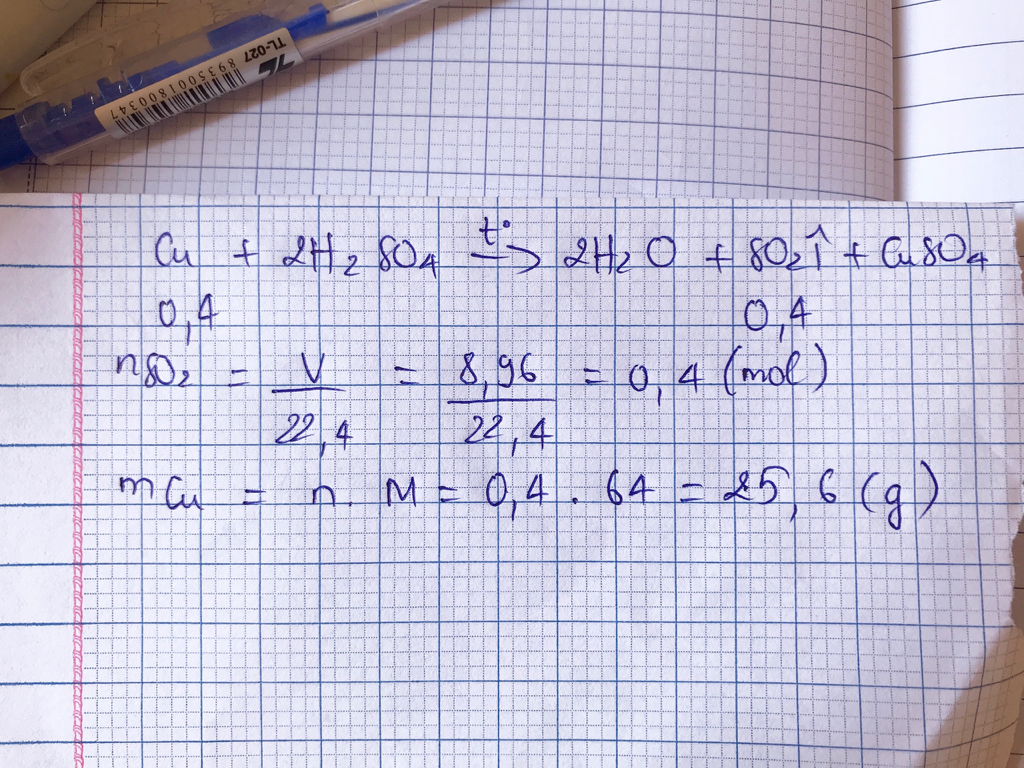 TL-027
8935001800347
Cu + 2H₂SO₄ t° → 2H₂O + SO₂↑ + CuSO₄
0,4 0,4
nSO₂ = V/22,4 = 8,96/22,4 = 0,4 (mol)
mCu = n. M = 0,4 . 64 = 25,6 (g)